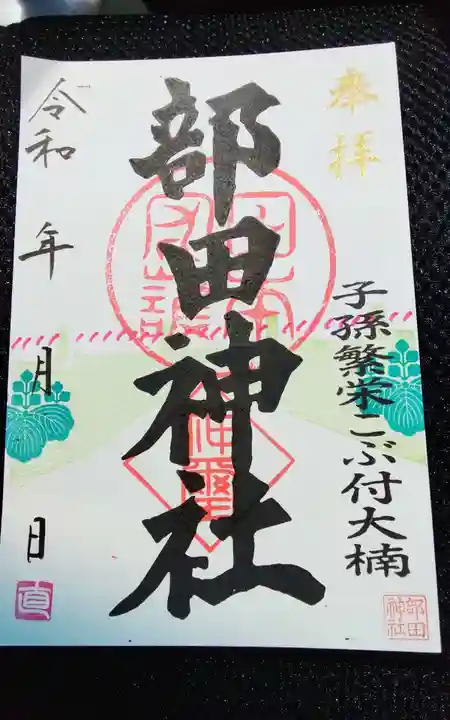 奉拝
子孫繁栄こぶ付大楠
部田神社
令和 年 月 日
部田
神社
直